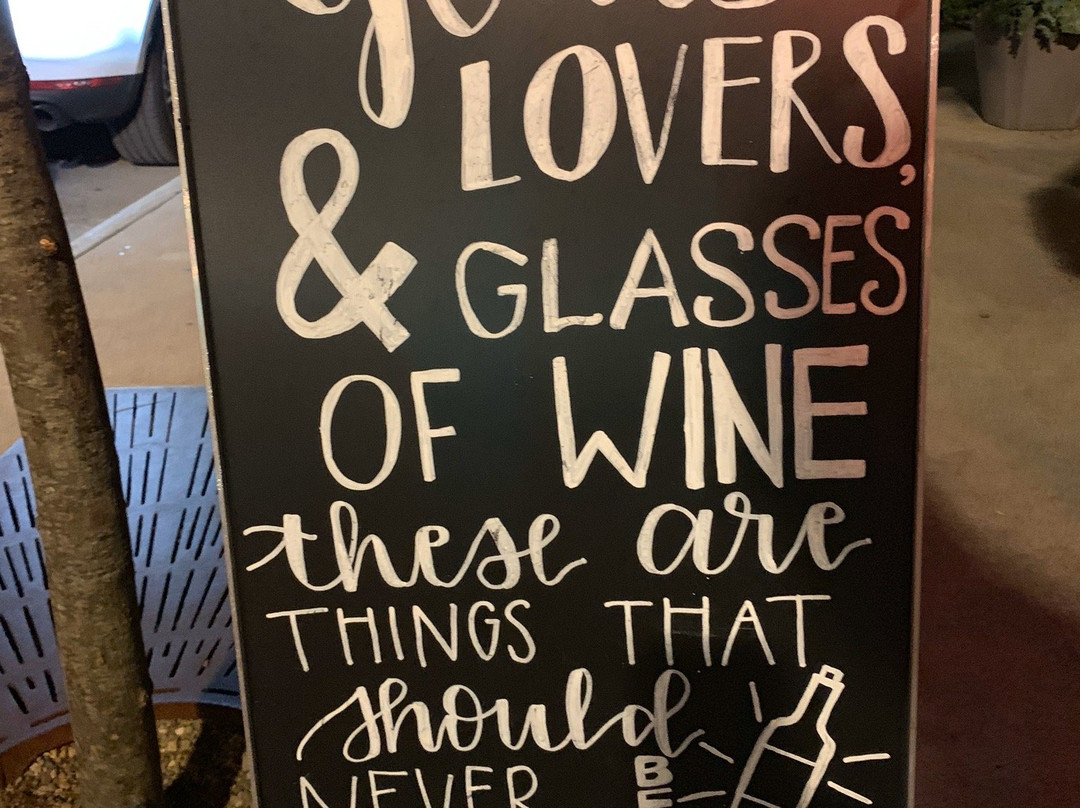 LOVERS,
& GLASSES
OF WINE
these are
THINGS THAT
should
NEVER BE